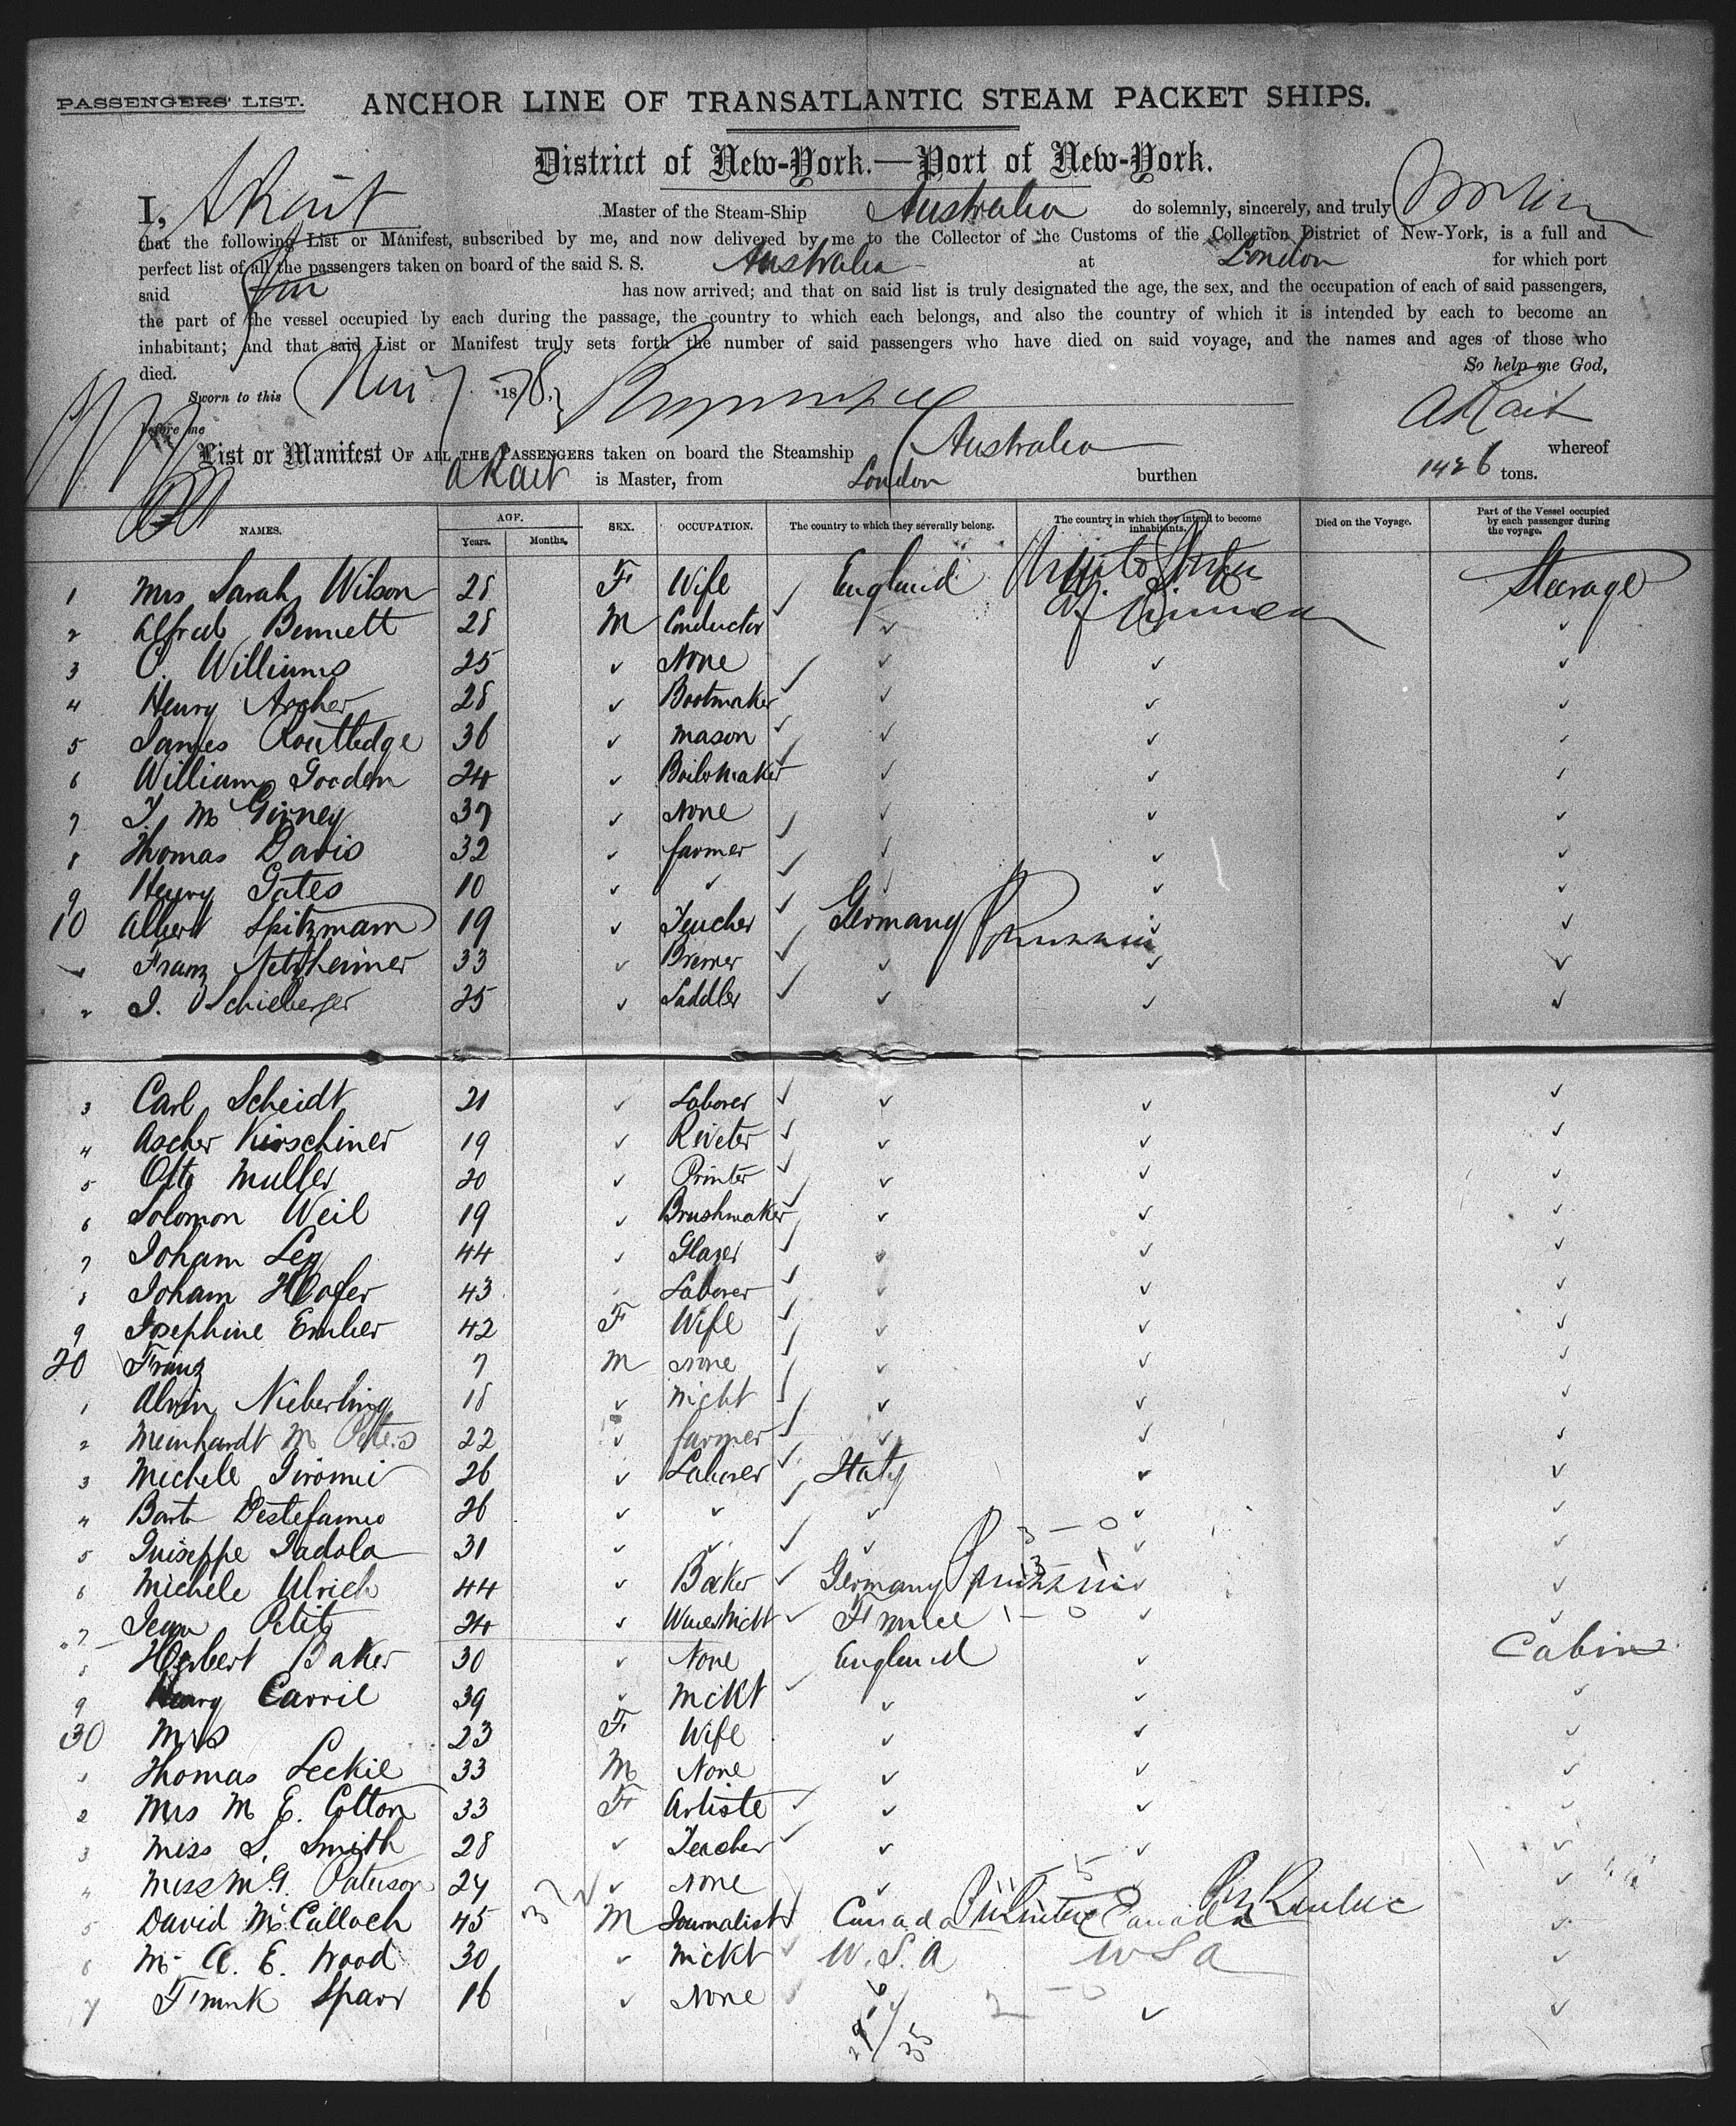 PASSENGERS' LIST. ANCHOR LINE OF TRANSATLANTIC STEAM PACKET SHIPS.
District of New-York.—Port of New-York.
I, A Kait Master of the Steam-Ship Australia do solemnly, sincerely, and truly
that the following List or Manifest, subscribed by me, and now delivered by me to the Collector of the Customs of the Collection District of New-York, is a full and
perfect list of all the passengers taken on board of the said S. S. Australia at London for which port
said has now arrived; and that on said list is truly designated the age, the sex, and the occupation of each of said passengers,
the part of the vessel occupied by each during the passage, the country to which each belongs, and also the country of which it is intended by each to become an
inhabitant; and that said List or Manifest truly sets forth the number of said passengers who have died on said voyage, and the names and ages of those who
died. So help me God,
Sworn to this 1878. A Kait
before me
List or Manifest OF ALL THE PASSENGERS taken on board the Steamship Australia whereof
A Kait is Master, from London burthen 1426 tons.
NAMES. AGE. Years. Months. SEX. OCCUPATION. The country to which they severally belong. The country in which they intend to become inhabitants. Died on the Voyage. Part of the Vessel occupied by each passenger during the voyage.
1 Mrs Sarah Wilson 28 F Wife ✓ England Steerage
2 Alfred Bennett 28 M Conductor ✓ ✓
3 C. Williams 25 ✓ None ✓ ✓ ✓ ✓
4 Henry Archer 28 ✓ Bootmaker ✓ ✓ ✓
5 James Routledge 36 ✓ Mason ✓ ✓ ✓ ✓
6 William Gooden 24 ✓ Boilermaker ✓ ✓ ✓ ✓
7 37 ✓ None ✓ ✓ ✓
8 Thomas Davis 32 ✓ farmer ✓ ✓ ✓ ✓
9 Henry Gates 10 ✓ ✓ ✓ ✓ ✓ ✓
10 Albert Spitzmann 19 ✓ Teacher ✓ Germany Prussia ✓ ✓
Franz 33 ✓ Brewer ✓ ✓ ✓ ✓
2 J. Schieberger 25 ✓ Saddler ✓ ✓ ✓ ✓
3 Carl Scheidt 21 ✓ Laborer ✓ ✓ ✓ ✓
4 Ascher Kirschiner 19 ✓ Riveter ✓ ✓ ✓ ✓
5 Otto Muller 20 ✓ Printer ✓ ✓ ✓ ✓
6 Solomon Weil 19 ✓ Brushmaker ✓ ✓ ✓
7 Joham Ley 44 ✓ Glazer ✓ ✓ ✓ ✓
8 Joham Hofer 43 Laborer ✓ ✓ ✓ ✓
9 Josephine Ember 42 F Wife ✓ ✓ ✓ ✓
20 Franz 7 M None ✓ ✓ ✓ ✓
1 Alvin Nieberling 18 ✓ Mcht ✓ ✓ ✓ ✓
2 Meinhardt M Peters 22 ✓ farmer ✓ ✓ ✓ ✓
3 Michele Giromi 26 ✓ Laborer ✓ Italy ✓ ✓
4 Barto Destefanno 26 ✓ ✓ ✓ ✓ ✓ ✓
5 Guiseppe Padola 31 ✓ ✓ ✓ ✓ ✓ ✓
6 Michele Ulrich 44 ✓ Baker ✓ Germany Prussia ✓ ✓
7 Jean Petit 24 ✓ ✓ France 1–0 ✓ ✓
8 Herbert Baker 30 ✓ None England ✓ Cabin
9 Henry Carril 39 ✓ Mckt ✓ ✓ ✓ ✓
30 Mrs 23 F Wife ✓ ✓ ✓
1 Thomas Leckie 33 M None ✓ ✓ ✓
2 Mrs M E. Cotton 33 F Artiste ✓ ✓ ✓ ✓
3 Miss S. Smith 28 ✓ Teacher ✓ ✓ ✓ ✓
4 Miss M G. Paterson 24 ✓ None ✓ ✓ ✓
5 David McCulloch 45 M Journalist ✓ Canada Canada ✓
6 Mr A. E. Wood 30 ✓ Mckt ✓ U.S.A USA ✓
7 Frank Sparr 16 ✓ None ✓ ✓ ✓
35